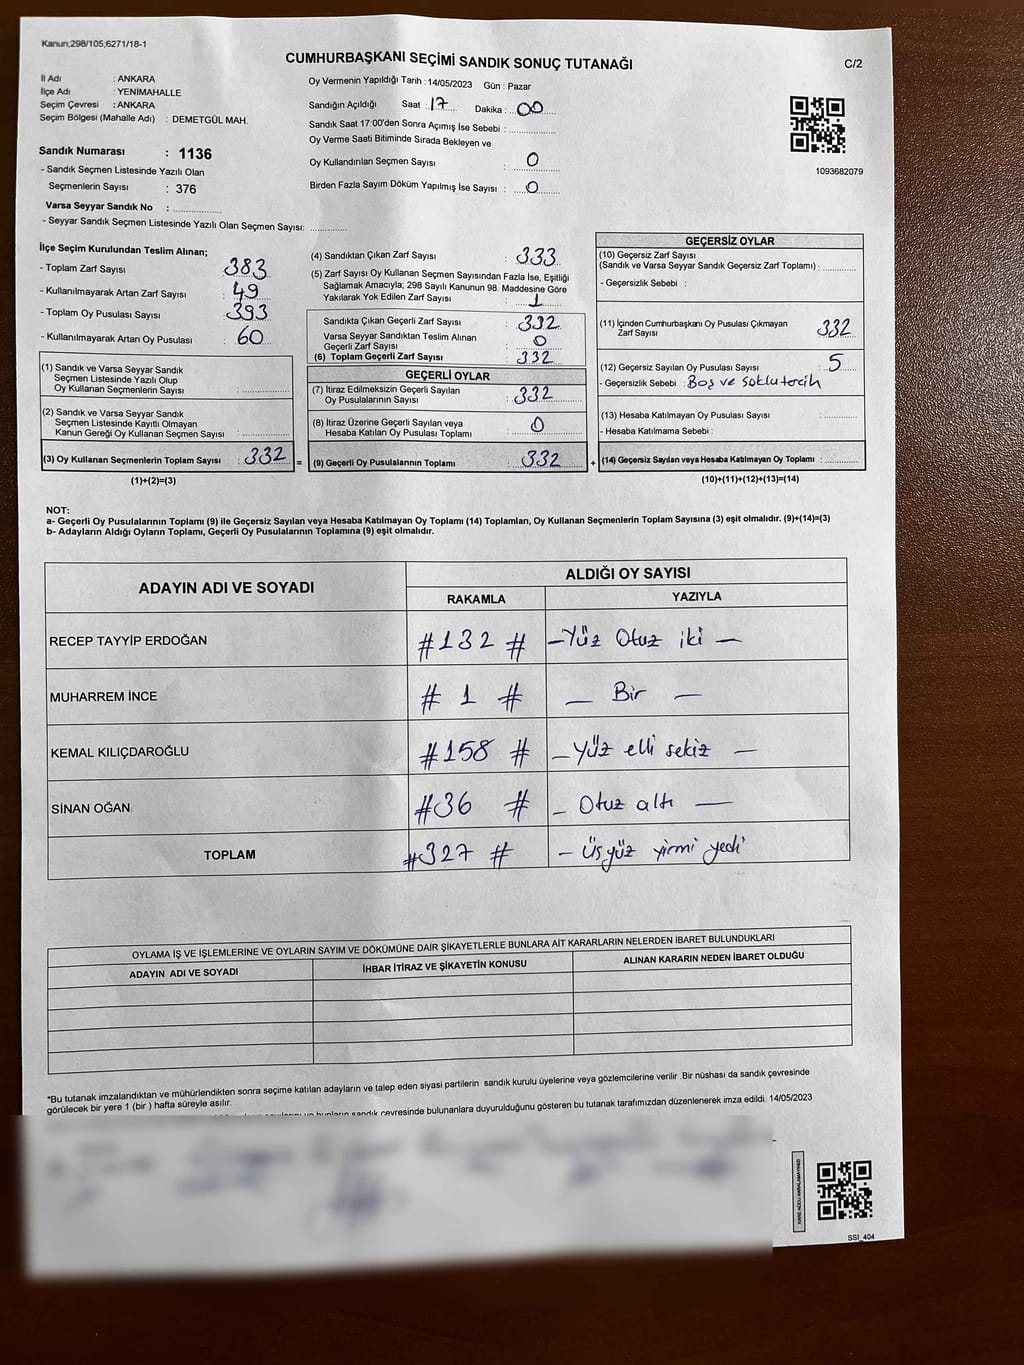 Kanun;298/105;6271/18-1
CUMHURBAŞKANI SEÇİMİ SANDIK SONUÇ TUTANAĞI
C/2
İl Adı : ANKARA
İlçe Adı : YENİMAHALLE
Seçim Çevresi : ANKARA
Seçim Bölgesi (Mahalle Adı) : DEMETGÜL MAH.
Sandık Numarası : 1136
- Sandık Seçmen Listesinde Yazılı Olan
Seçmenlerin Sayısı : 376
Varsa Seyyar Sandık No :
- Seyyar Sandık Seçmen Listesinde Yazılı Olan Seçmen Sayısı:
Oy Vermenin Yapıldığı Tarih : 14/05/2023 Gün : Pazar
Sandığın Açıldığı Saat : 17 Dakika : 00
Sandık Saat 17:00'den Sonra Açımış İse Sebebi :
Oy Verme Saati Bitiminde Sırada Bekleyen ve
Oy Kullandırılan Seçmen Sayısı : 0
Birden Fazla Sayım Döküm Yapılmış İse Sayısı : 0
1093682079
İlçe Seçim Kurulundan Teslim Alınan;
- Toplam Zarf Sayısı : 383
- Kullanılmayarak Artan Zarf Sayısı : 49
- Toplam Oy Pusulası Sayısı : 393
- Kullanılmayarak Artan Oy Pusulası : 60
(1) Sandık ve Varsa Seyyar Sandık
Seçmen Listesinde Yazılı Olup
Oy Kullanan Seçmenlerin Sayısı :
(2) Sandık ve Varsa Seyyar Sandık
Seçmen Listesinde Kayıtlı Olmayan
Kanun Gereği Oy Kullanan Seçmen Sayısı :
(3) Oy Kullanan Seçmenlerin Toplam Sayısı : 332 =
(1)+(2)=(3)
(4) Sandıktan Çıkan Zarf Sayısı : 333
(5) Zarf Sayısı Oy Kullanan Seçmen Sayısından Fazla İse, Eşitliği
Sağlamak Amacıyla; 298 Sayılı Kanunun 98. Maddesine Göre
Yakılarak Yok Edilen Zarf Sayısı : 1
Sandıkta Çıkan Geçerli Zarf Sayısı : 332
Varsa Seyyar Sandıktan Teslim Alınan
Geçerli Zarf Sayısı : 0
(6) Toplam Geçerli Zarf Sayısı : 332
GEÇERLİ OYLAR
(7) İtiraz Edilmeksizin Geçerli Sayılan
Oy Pusulalarının Sayısı : 332
(8) İtiraz Üzerine Geçerli Sayılan veya
Hesaba Katılan Oy Pusulası Toplamı : 0
(9) Geçerli Oy Pusulalarının Toplamı : 332 +
GEÇERSİZ OYLAR
(10) Geçersiz Zarf Sayısı
(Sandık ve Varsa Seyyar Sandık Geçersiz Zarf Toplamı) :
- Geçersizlik Sebebi :
(11) İçinden Cumhurbaşkanı Oy Pusulası Çıkmayan
Zarf Sayısı : 332
(12) Geçersiz Sayılan Oy Pusulası Sayısı : 5
- Geçersizlik Sebebi : Boş ve
(13) Hesaba Katılmayan Oy Pusulası Sayısı :
- Hesaba Katılmama Sebebi :
(14) Geçersiz Sayılan veya Hesaba Katılmayan Oy Toplamı :
(10)+(11)+(12)+(13)=(14)
NOT:
a- Geçerli Oy Pusulalarının Toplamı (9) ile Geçersiz Sayılan veya Hesaba Katılmayan Oy Toplamı (14) Toplamları, Oy Kullanan Seçmenlerin Toplam Sayısına (3) eşit olmalıdır. (9)+(14)=(3)
b- Adayların Aldığı Oyların Toplamı, Geçerli Oy Pusulalarının Toplamına (9) eşit olmalıdır.
ADAYIN ADI VE SOYADI
ALDIĞI OY SAYISI
RAKAMLA YAZIYLA
RECEP TAYYİP ERDOĞAN #132 # — Yüz Otuz iki —
MUHARREM İNCE # 1 # — Bir —
KEMAL KILIÇDAROĞLU #158 # — Yüz elli sekiz —
SİNAN OĞAN #36 # — Otuz altı —
TOPLAM #327 # — Üsyüz yirmi yedi
OYLAMA İŞ VE İŞLEMLERİNE VE OYLARIN SAYIM VE DÖKÜMÜNE DAİR ŞİKAYETLERLE BUNLARA AİT KARARLARIN NELERDEN İBARET BULUNDUKLARI
ADAYIN ADI VE SOYADI İHBAR İTİRAZ VE ŞİKAYETİN KONUSU ALINAN KARARIN NEDEN İBARET OLDUĞU
*Bu tutanak imzalandıktan ve mühürlendikten sonra seçime katılan adayların ve talep eden siyasi partilerin sandık kurulu üyelerine veya gözlemcilerine verilir .Bir nüshası da sandık çevresinde
görülecek bir yere 1 (bir ) hafta süreyle asılır.
bunların sandık çevresinde bulunanlara duyurulduğunu gösteren bu tutanak tarafımızdan düzenlenerek imza edildi. 14/05/2023
SSI_404